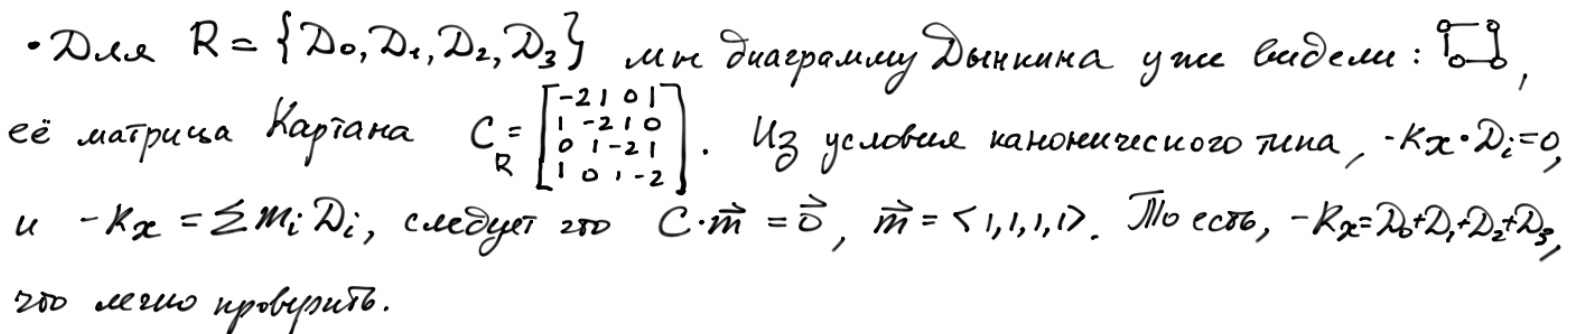 • Для R = {D₀, D₁, D₂, D₃} мы диаграмму Дынкина уже видели: ,
её матрица Картана C_R = [-2 1 0 1; 1 -2 1 0; 0 1 -2 1; 1 0 1 -2]. Из условия канонического типа, -Kx·Dᵢ=0,
и -Kx = ΣmᵢDᵢ, следует что C·m⃗ = 0⃗, m⃗ = <1,1,1,1>. То есть, -Kx=D₀+D₁+D₂+D₃,
что легко проверить.